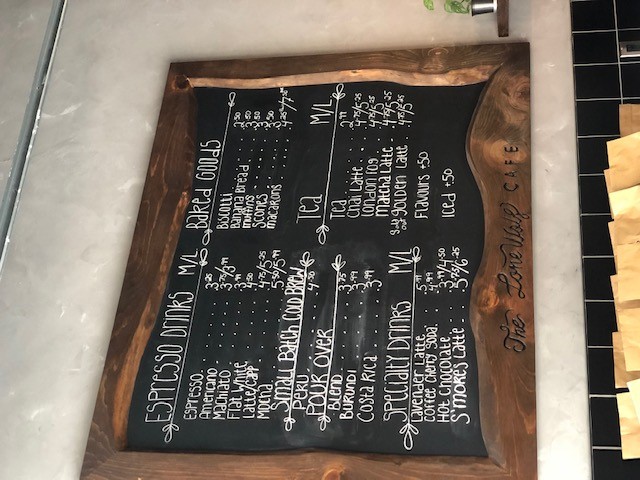 The Lone Wolf
CAFE
ESPRESSO DRINKS M/L
Espresso
Americano 3.25
Machiato 3
Flat White 3.99
Latte/Capp 4.50
Mocha 4.75/5.25
Small Batch Cold Brew 5.50/5.99
Peru 4.50
Pour Over
Blend 3.75
Burundi 3.99
Costa Rica 3.99
Specialty Drinks M/L
Lavender Latte
Coffee Cherry Soda 4.99
Hot Chocolate 3.99/4.50
S'mores Latte 5.75/6.25
Baked Goods
Biscotti 2.50
Banana Bread 3.50
Muffins 3.50
Scones 3.50
Macarons
Tea M/L
Tea 2.99
Chai Latte 4.75/5.25
London Fog 4.75/5.25
Matcha Latte 4.75/5.25
Sold out Golden Latte 4.75/5.25
Flavours +.50
Iced +.50